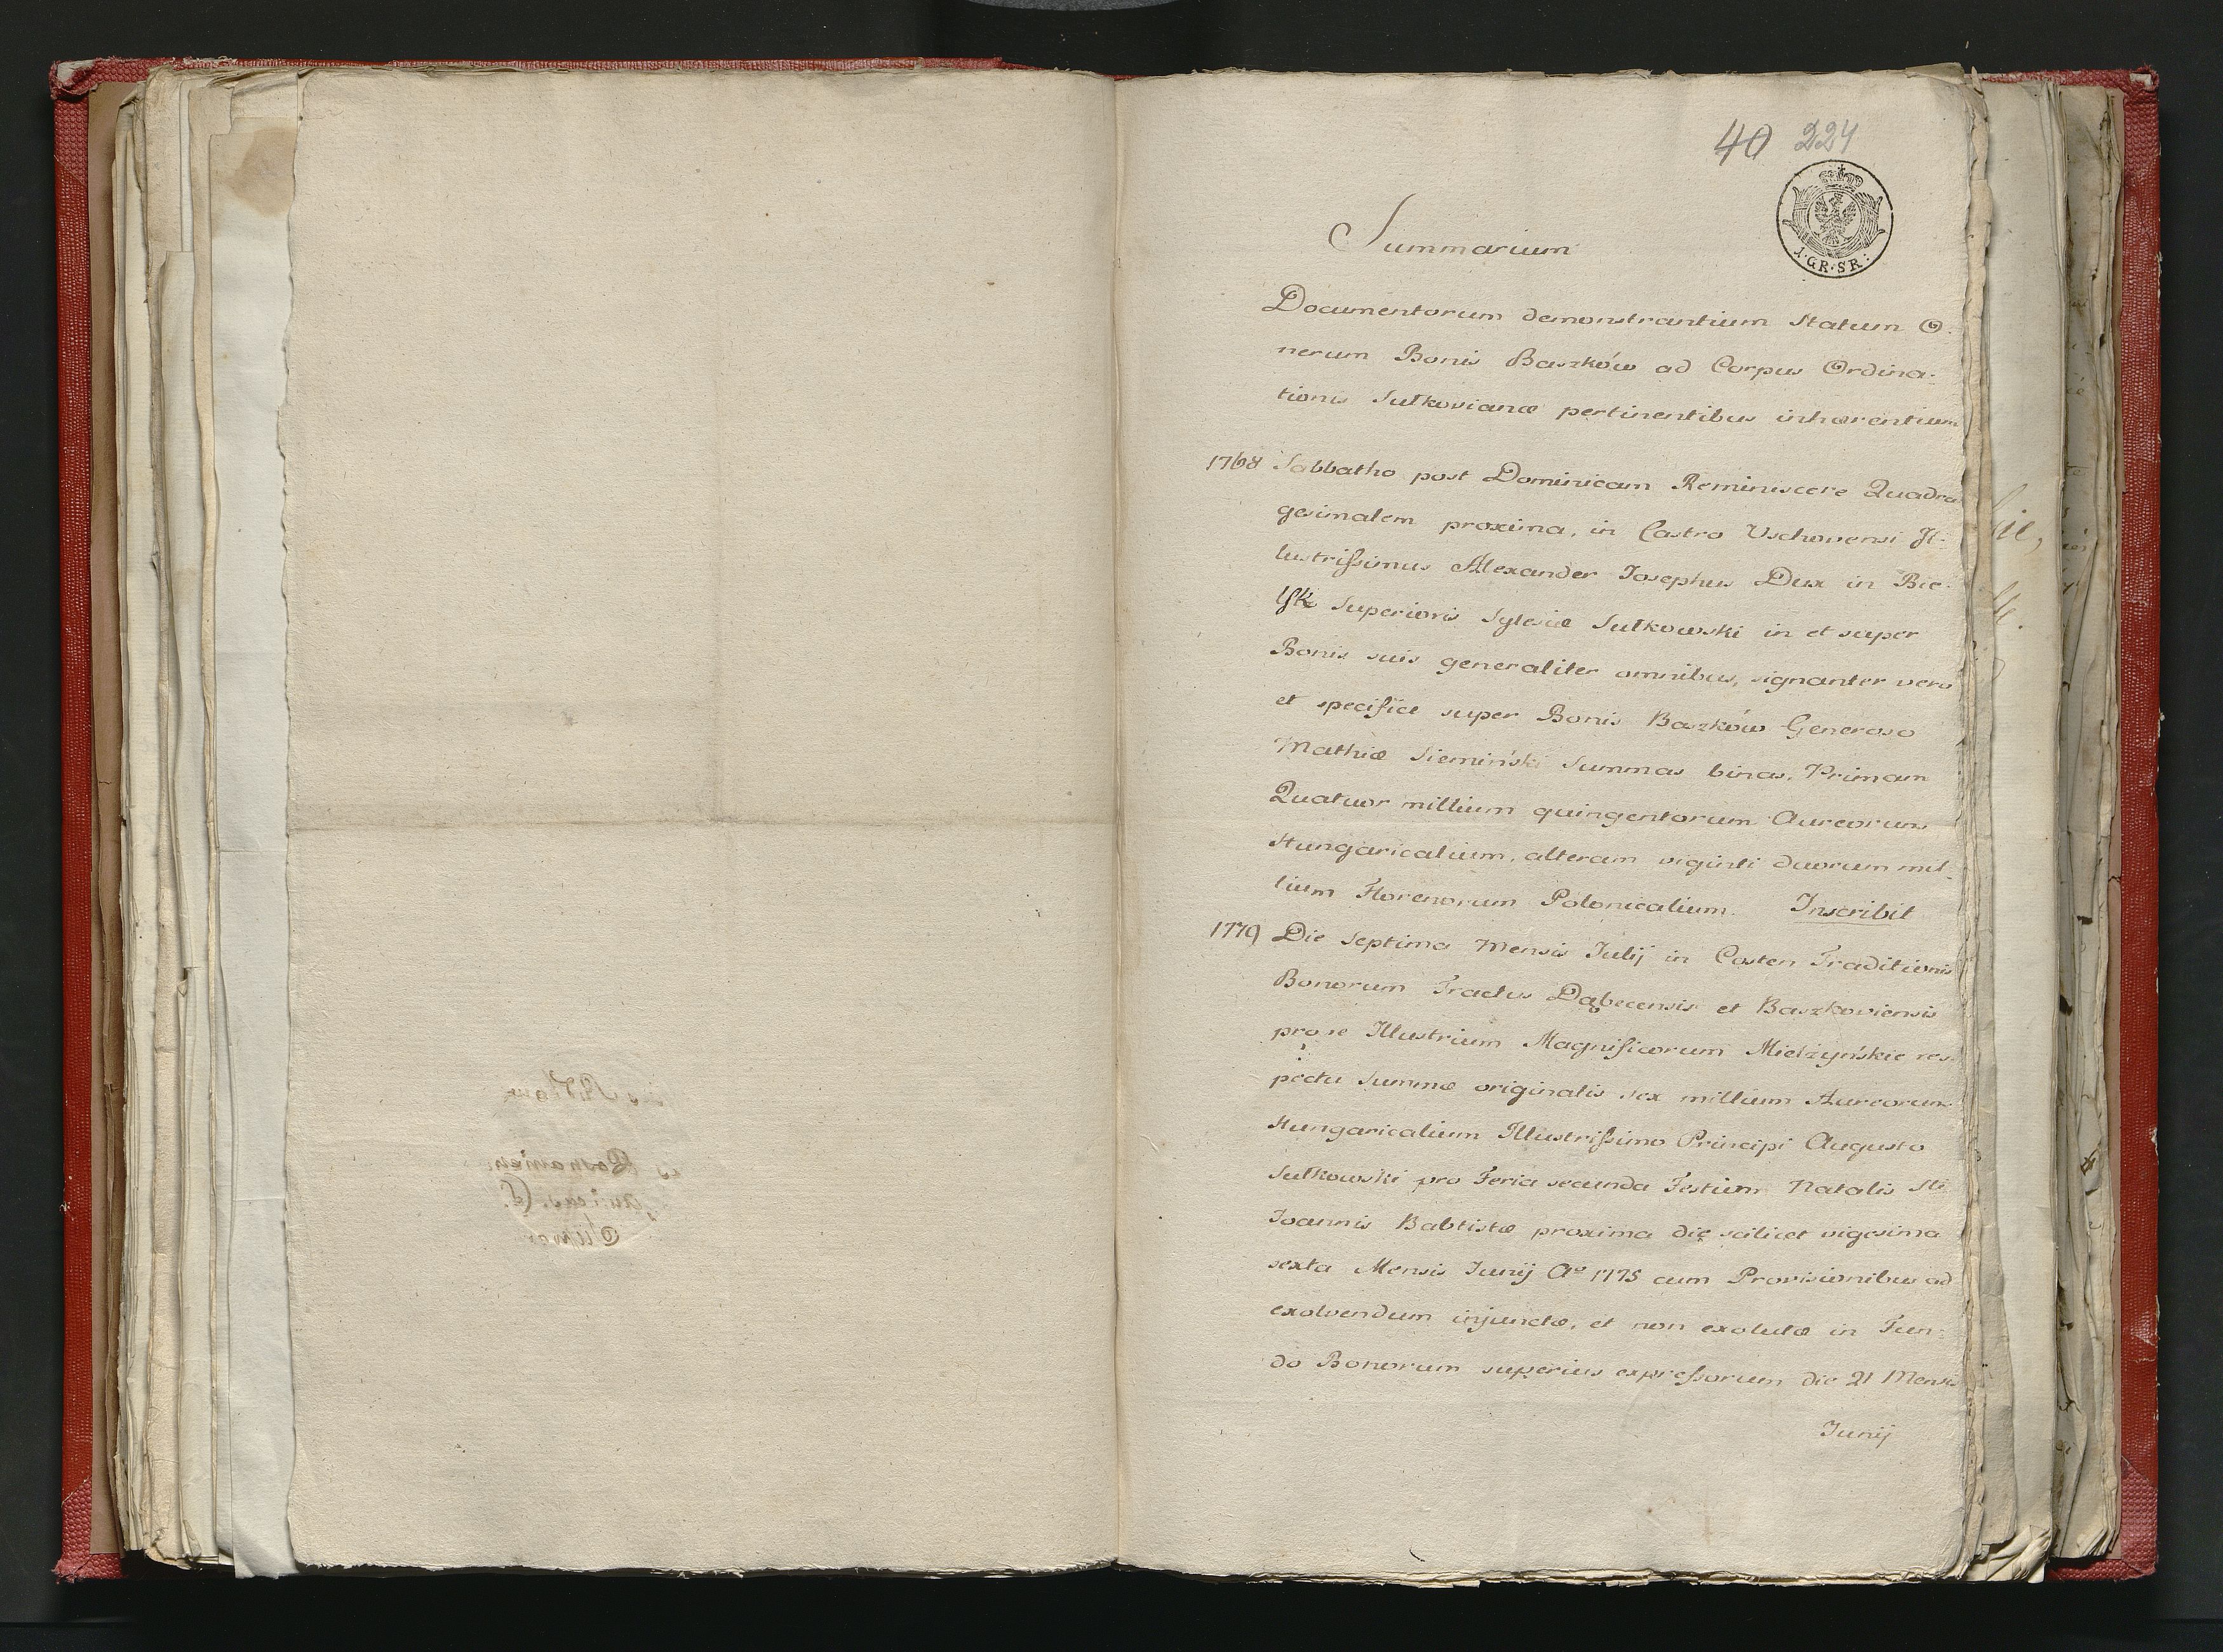 40 224
1·GR·SR:
Summarium
Documentorum demonstrantium statum O-
nerum Bonis Baszków ad Corpus Ordina-
tionis Sułkovianæ pertinentibus inhærentium
1768 Sabbatho post Dominicam Reminiscere Quadra
gesimalem proxima, in Castro Vschovensi Il-
lustrissimus Alexander Josephus Dux in Bie-
lsk Superioris Sylesiæ Sułkowski in et super
Bonis suis generaliter omnibus, signanter vero
et specifice super Bonis Baszków Generoso
Mathiæ Siemiński Summas binas, Primam
Quatuor millium quingentorum Aureorum
Hungaricalium, alteram viginti duorum mil-
lium Florenorum Polonicalium. Inscribit
1779 Die Septima Mensis Julij in Costen Traditionis
Bonorum Tractus Dąbecensis et Baszkoviensis
pro se Illustrium Magnificorum Mielżyńskie res-
pectu Summæ originalis sex millium Aureorum
Hungaricalium Illustrissimo Principi Augusto
Sułkowski pro Feria secunda Festum Natalis Sti
Joannis Babtistæ proxima die scilicet vigesima
sexta Mensis Junij Ao 1775 cum Provisionibus ad
exolvendum injunctæ, et non exolutæ in Fun-
do Bonorum superius expressorum die 21 Mensis
Junij